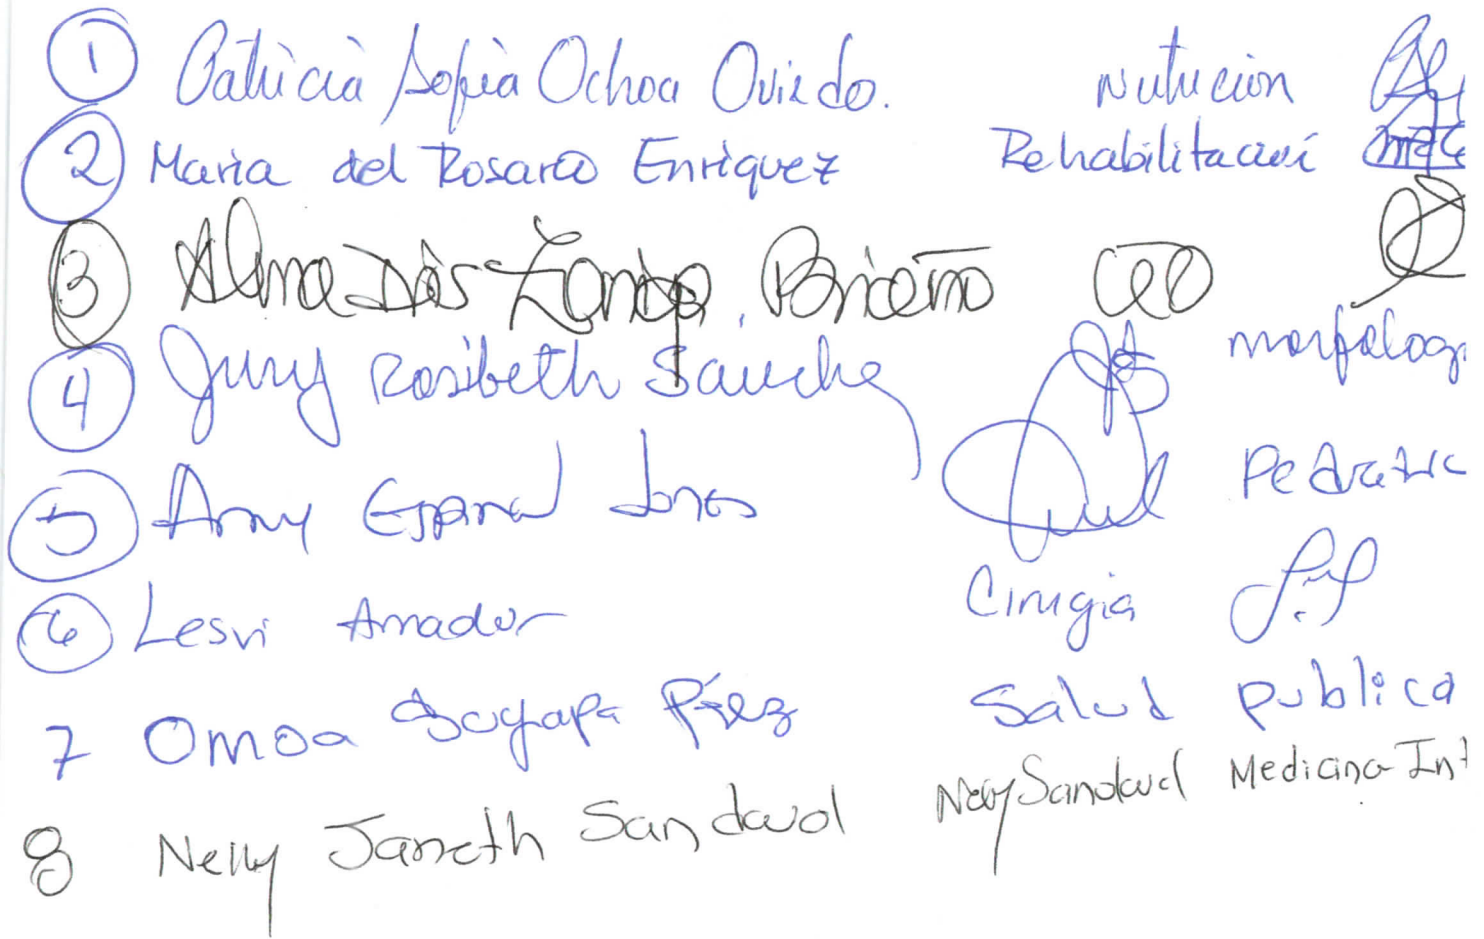 1 Patricia Sofia Ochoa Oviedo. Nutricion
2 Maria del Rosario Enriquez Rehabilitación
3 Alma Briceño
4 Jury Rosibeth Sanchez morfolog
5 Espinal Jones Pediatric
6 Lesvi Amador Cirugia
7 Omoa Suyapa Pérez Salud publica
8 Nelly Janeth Sandoval Nelly Sandoval Medicina Int